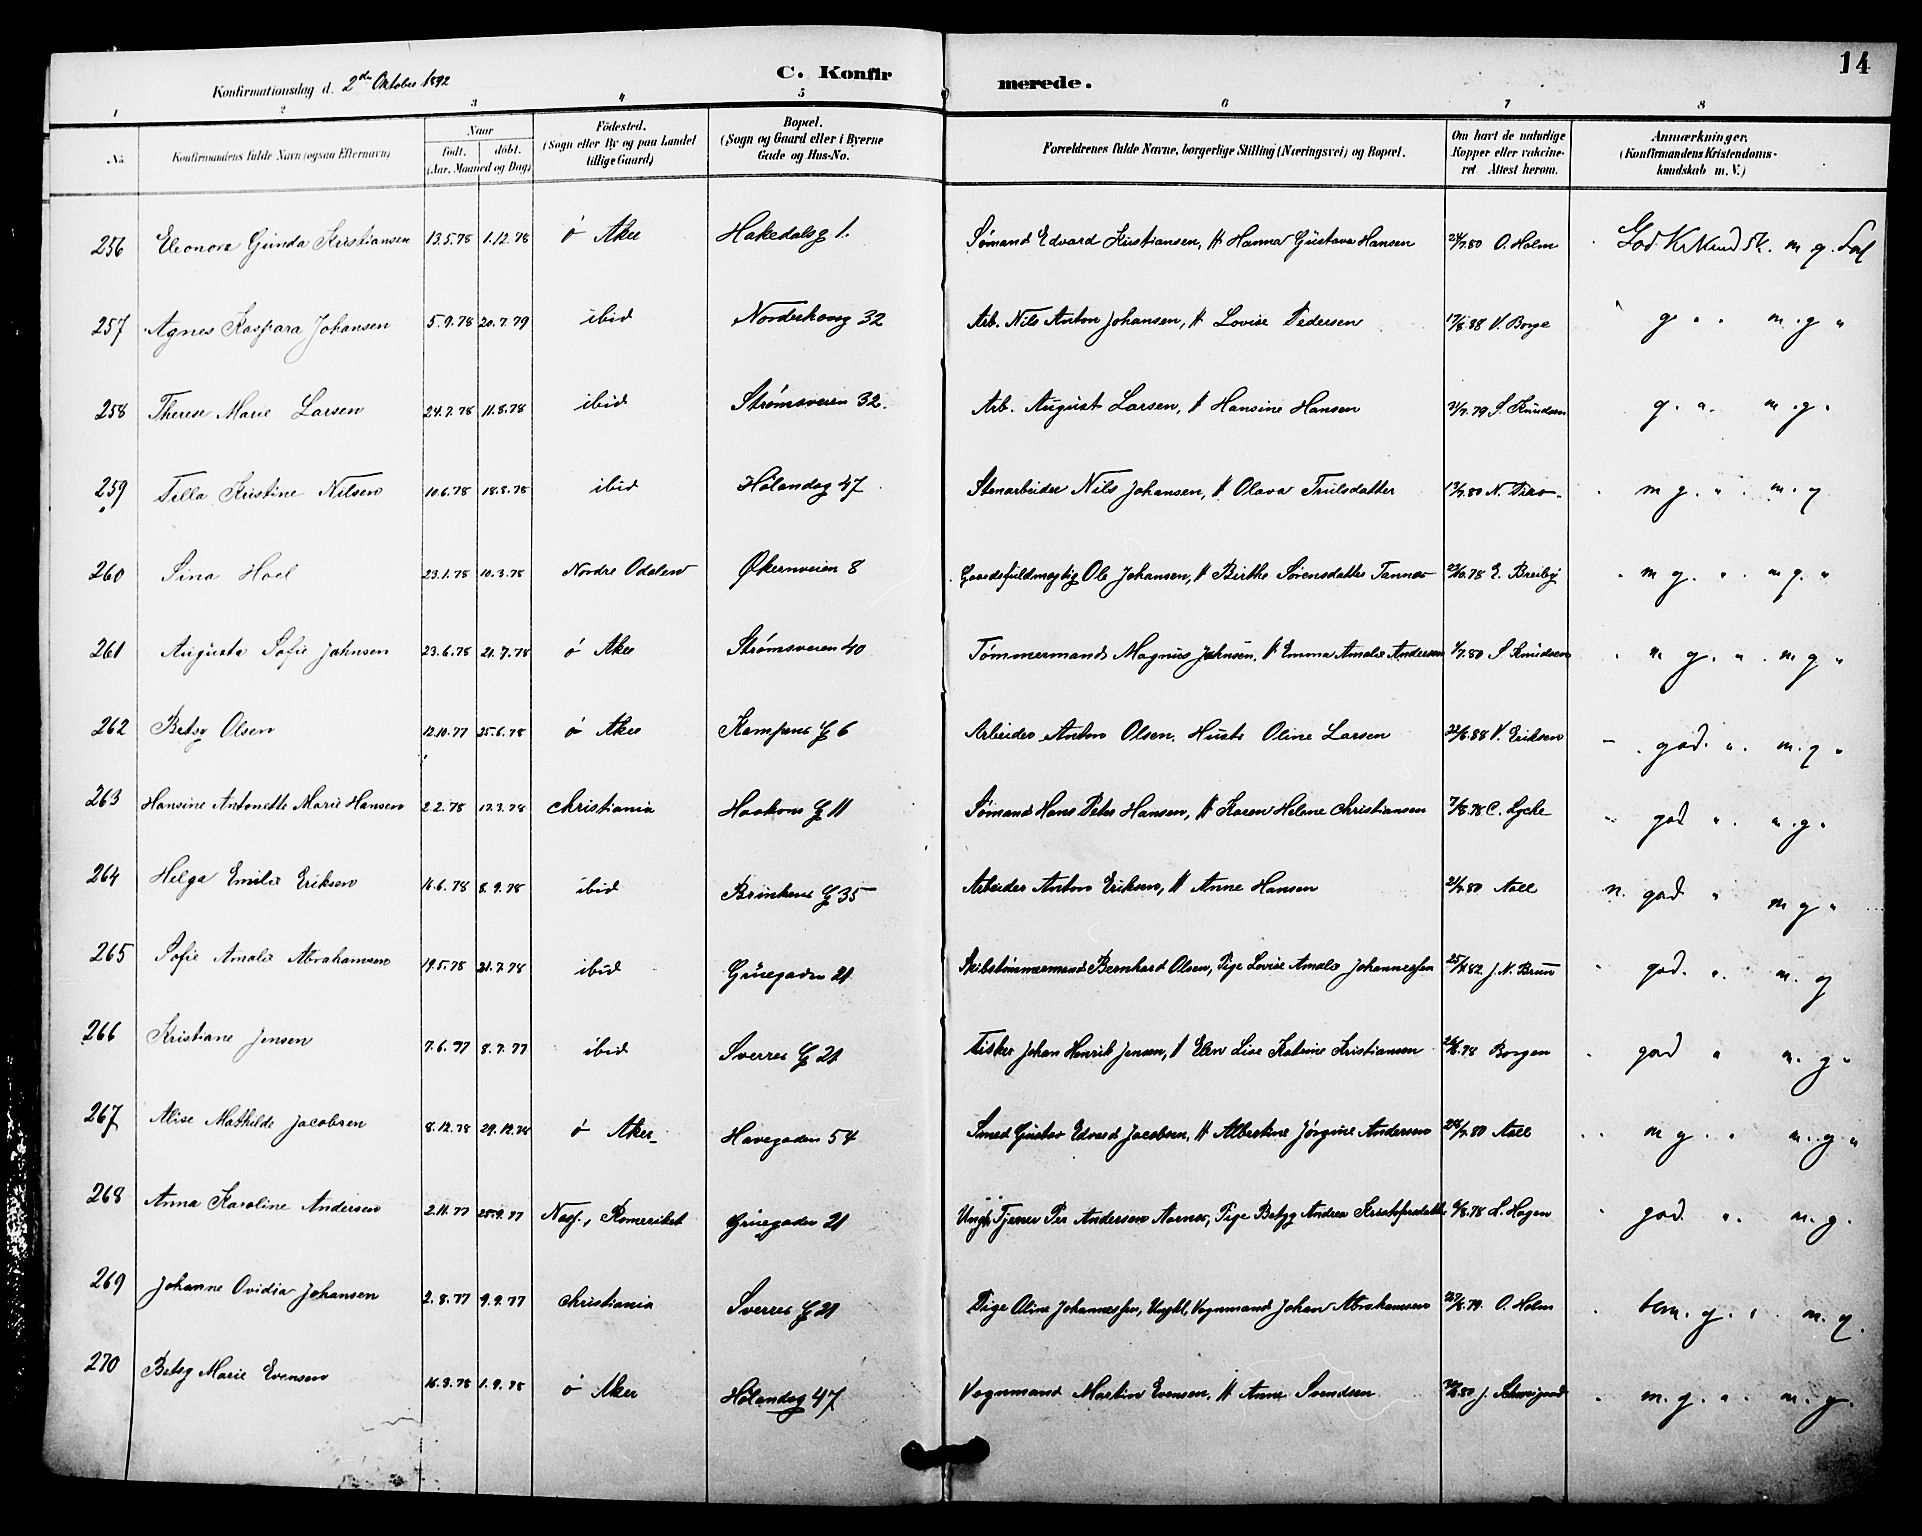 14
Konfirmationsdag d. 2den Oktober 1892
C. Konfir merede.
1 2 3 4 5 6 7 8
No. Konfirmandens fulde Navn (ogsaa Efternavn) Naar født. døbt. (Aar, Maaned og Dag) Fødested. (Sogn eller By og paa Landet tillige Gaard) Bopæl. (Sogn og Gaard eller i Byerne Gade og Hus-No. Forældrenes fulde Navne, borgerlige Stilling (Næringsvei) og Bopæl. Om havt de naturlige Kopper eller vakcineret Attest herom. Anmærkninger. (Konfirmandens Kristendomskundskab m. V.)
256 Eleonora Gunda Kristiansen 13.5.78 1.12.78 ø Aker Hakedalsg 1. Sømand Edvard Kristiansen, H Hanna Gustava Hansen 24/7.80 O. Holm God Kr Kundsk. m g.
257 Agnes Kaspara Johansen 5.9.78 20.7.79 ibid Norderhovg 32 Arb. Nils Anton Johansen, H Lovise Pedersen 17/8.88 V. Borge g. " . m.g "
258 Therese Marie Larsen 24.7.78 11.8.78 ibid Strømsveien 32. Arb. August Larsen, H Hansine Hansen 21/7.79 S. Knudsen g. " . m.g "
259 Tilla Kristine Nilsen 10.6.78 18.8.78 ibid Hølandsg 47 Stenarbeider Nils Johansen, H Olava Trulsdatter 17/7.80 m g. " . m. g
260 Sina Hoel 23.1.78 10.3.78 Nordre Odalen Økernveien 8 Gaardsfuldmægtig Ole Johansen, H Birthe Sørensdatter 23/10.78 E. Breiby m g. " . m g. "
261 Augusta Sofie Johnsen 23.6.78 21.7.78 ø Aker Strømsveien 40 Tømmermand Magnus Johnsen, H Emma Amalie Andersen 1/7.80 S Knudsen m g. " . m. g "
262 Betsy Olsen 12.10.77 25.6.78 ø Aker Kampens G 6 Arbeider Anton Olsen, Hustr Oline Larsen 22/6.88 V. Eriksen god. " . m. g "
263 Hansine Antonette Marie Hansen 2.2.78 17.3.78 Christiania Haakons G 11 Sømand Hans Peter Hansen, H Karen Helene Christiansen 7/8.78 C. Lyche god " . m.g "
264 Helga Emilie Eriksen 16.6.78 8.9.78 ibid Brinkens G 35 Arbeider Anton Eriksen, H Anne Hansen 21/7.80 Aall god " m g "
265 Sofie Amalie Abrahamsen 19.5.78 21.7.78 ibid Grüegaden 21 Skibstømmermand Bernhard Olsen, Pige Lovise Amalie Johannessen 25/4.82 J. N. Bruun god. " . m. g
266 Kristiane Jensen 7.6.77 8.7.77 ibid Sverres G 21 Fisker Johan Henrik Jensen, H Elen Lise Katrine Kristiansen 26/6.78 Borgen god " m. g "
267 Alise Mathilde Jacobsen 8.12.78 29.12.78 ø Aker Havegaden 54 Smed Gustav Edvard Jacobsen, H Albertine Jørgine Andersen 28/7.80 Aall m g. " m. g "
268 Anna Karoline Andersen 2.11.77 25.9.77 Næs, Romeriket Grüegaden 21 Ungk. Tjener Per Andersen Aarnes, Pige Betzy Andrea Kristofersdatter 6/8.78 L. Hagen god. " . m. g.
269 Johanne Ovidia Johansen 2.8.77 9.9.77 Christiania Sverres G 21 Pige Oline Johannessen, Ungkl, Vognmand Johan Abrahamsen 27/6.79. O. Holm tem. g. " . m. g.
270 Betsy Marie Evensen 16.8.78 1.9.78 ø Aker Hølandsg 47 Vognmand Martin Evensen, H Anne Svendsen J. Schweigaard m. g. " . m. g.